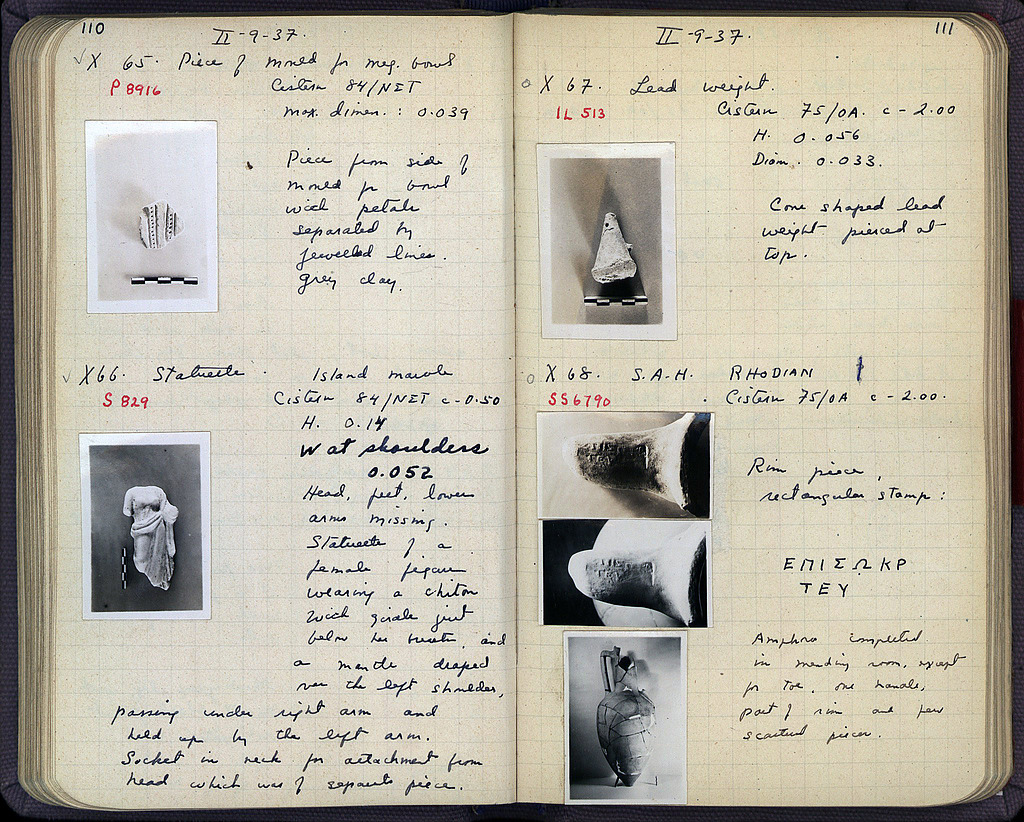 110
II-9-37.
✓ X 65. Piece of mould for meg. bowl
P 8916
Cistern 84/NET
max. dimen. : 0.039
Piece from side of
mould for bowl
with petals
separated by
jewelled lines.
grey clay.
✓ X66. Statuette. Island marble
S 829
Cistern 84/NET c-0.50
H. 0.14
W at shoulders
0.052
Head, feet, lower
arms missing.
Statuette of a
female figure
wearing a chiton
with girdle just
below her breasts, and
a mantle draped
over the left shoulder,
passing under right arm and
held up by the left arm.
Socket in neck for attachment from
head which was of separate piece.
111
II-9-37.
o X 67. Lead weight.
IL 513
Cistern 75/OA. c-2.00
H. 0.056
Diam. 0.033.
Cone shaped lead
weight pierced at
top.
o X 68. S.A.H. RHODIAN
SS6790
Cistern 75/OA c-2.00.
Rim piece,
rectangular stamp:
ΕΠΙΣΩΚΡ
ΤΕΥ
Amphora completed
in mending room, except
for toe, one handle,
part of rim and few
scattered pieces.